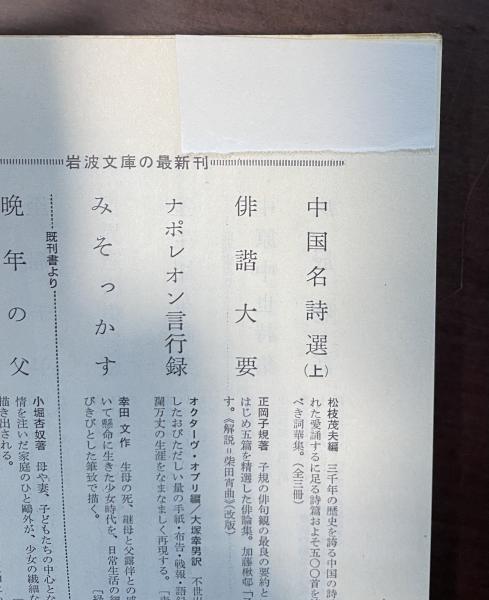 岩波文庫の最新刊
中国名詩選(上)
松枝茂夫編 三千年の歴史を誇る中国の詩
れた愛誦するに足る詩篇およそ五〇〇首を
べき詞華集。(全三冊)
俳諧大要
正岡子規著 子規の俳句観の最良の要約と
はじめ五篇を精選した俳論集。加藤楸邨「
す。《解説=柴田宵曲》(改版)
ナポレオン言行録
オクターヴ・オブリ編/大塚幸男訳 不世出
したおびただしい量の手紙・布告・戦報・語録
瀾万丈の生涯をなまなましく再現する。
みそっかす
幸田文作 生母の死、継母と父露伴との感
いて懸命に生きた少女時代を、日常生活の細
びきびとした筆致で描く。
既刊書より
晩年の父
小堀杏奴著 母や妻、子どもたちの中心とな
情を注いだ家庭のひと鷗外が、少女の繊細な
描き出される。